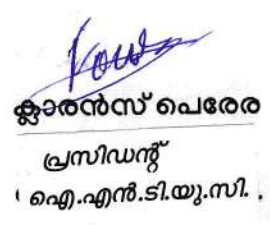 ക്ലാരൻസ് പെരേര
പ്രസിഡന്റ്
ഐ.എൻ.ടി.യു.സി.